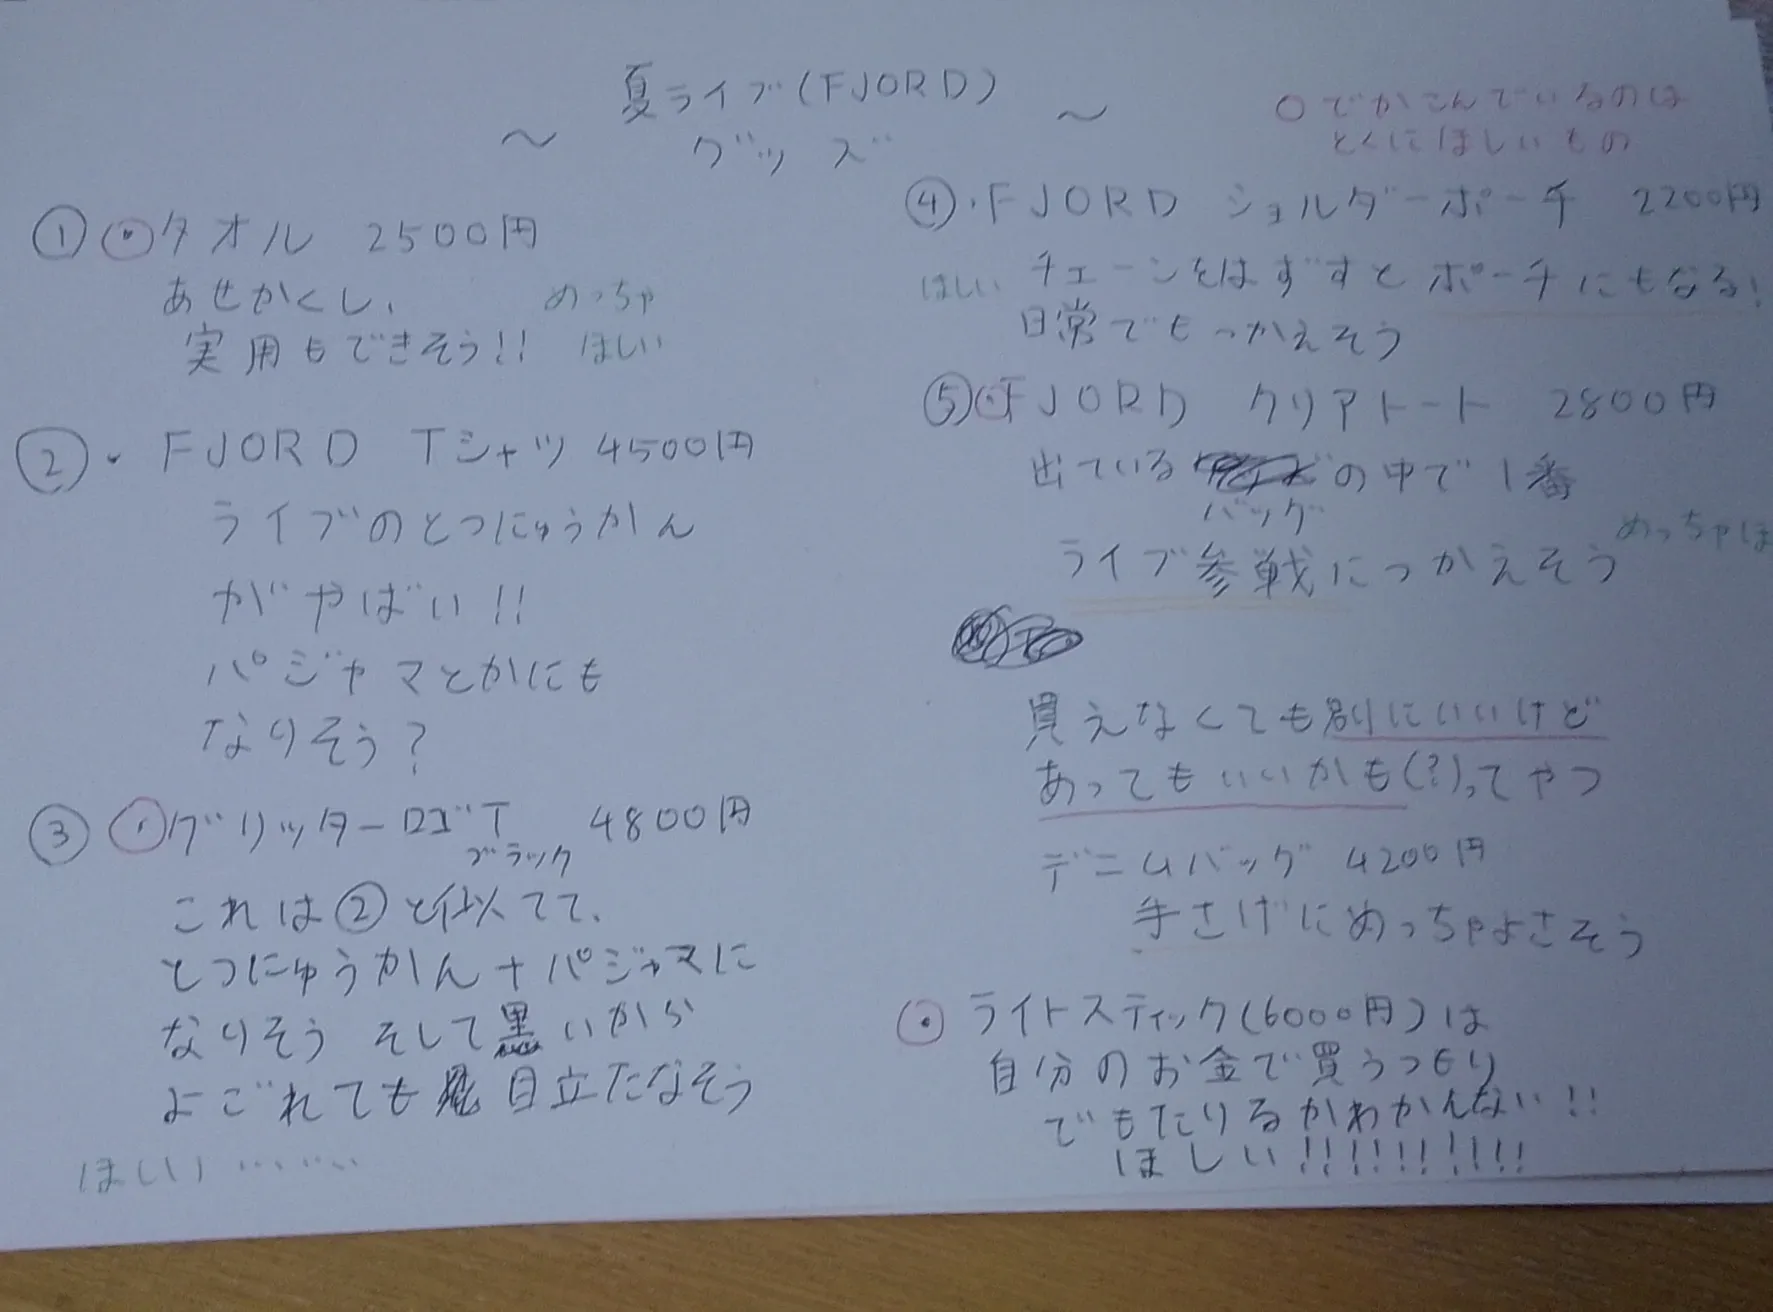 夏ライブ(FJORD)
～ グッズ ～
○でかこんでいるのは
とくにほしいもの
① ・タオル 2500円
あせかくし、
実用もできそう!!
めっちゃ
ほしい
② ・ FJORD Tシャツ 4500円
ライブのとつにゅうかん
がやばい!!
パジャマとかにも
なりそう?
③ ・グリッターロゴT 4800円
ブラック
これは②と似てて、
とつにゅうかん+パジャマに
なりそう そして黒いから
よごれても 目立たなそう
ほしい……
④・FJORD ショルダーポーチ 2200円
ほしい チェーンをはずすとポーチにもなる!
日常でもつかえそう
⑤・FJORD クリアトート 2800円
出ている の中で1番
バッグ
ライブ参戦につかえそう めっちゃほ
買えなくても別にいいけど
あってもいいかも(?)ってやつ
デニムバッグ 4200円
手さげにめっちゃよさそう
・ライトスティック(6000円)は
自分のお金で買うつもり
でもたりるかわかんない!!
ほしい!!!!!!!!!!